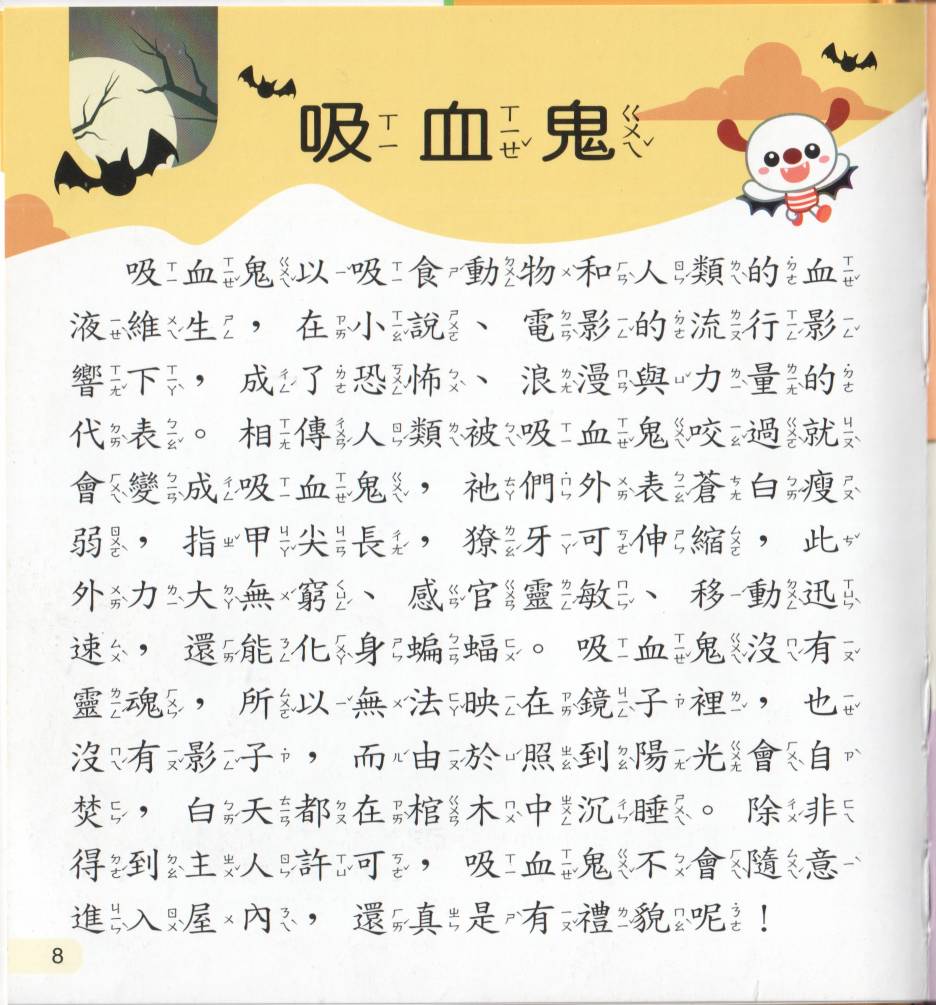 吸血鬼
吸血鬼以吸食動物和人類的血
液維生，在小說、電影的流行影
響下，成了恐怖、浪漫與力量的
代表。相傳人類被吸血鬼咬過就
會變成吸血鬼，祂們外表蒼白瘦
弱，指甲尖長，獠牙可伸縮，此
外力大無窮、感官靈敏、移動迅
速，還能化身蝙蝠。吸血鬼沒有
靈魂，所以無法映在鏡子裡，也
沒有影子，而由於照到陽光會自
焚，白天都在棺木中沉睡。除非
得到主人許可，吸血鬼不會隨意
進入屋內，還真是有禮貌呢！
8